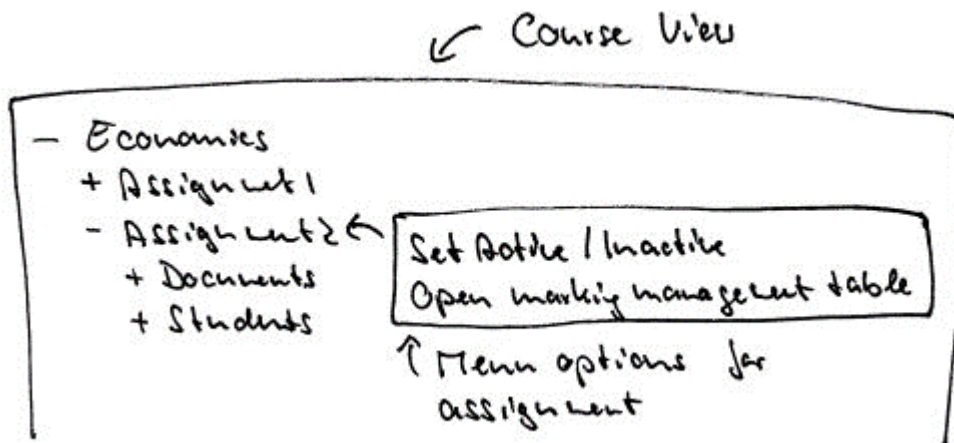 Course View
- Economics
+ Assignment 1
- Assignment 2
+ Documents
+ Students
Set Active / Inactive
Open marking management table
Menu options for
assignment